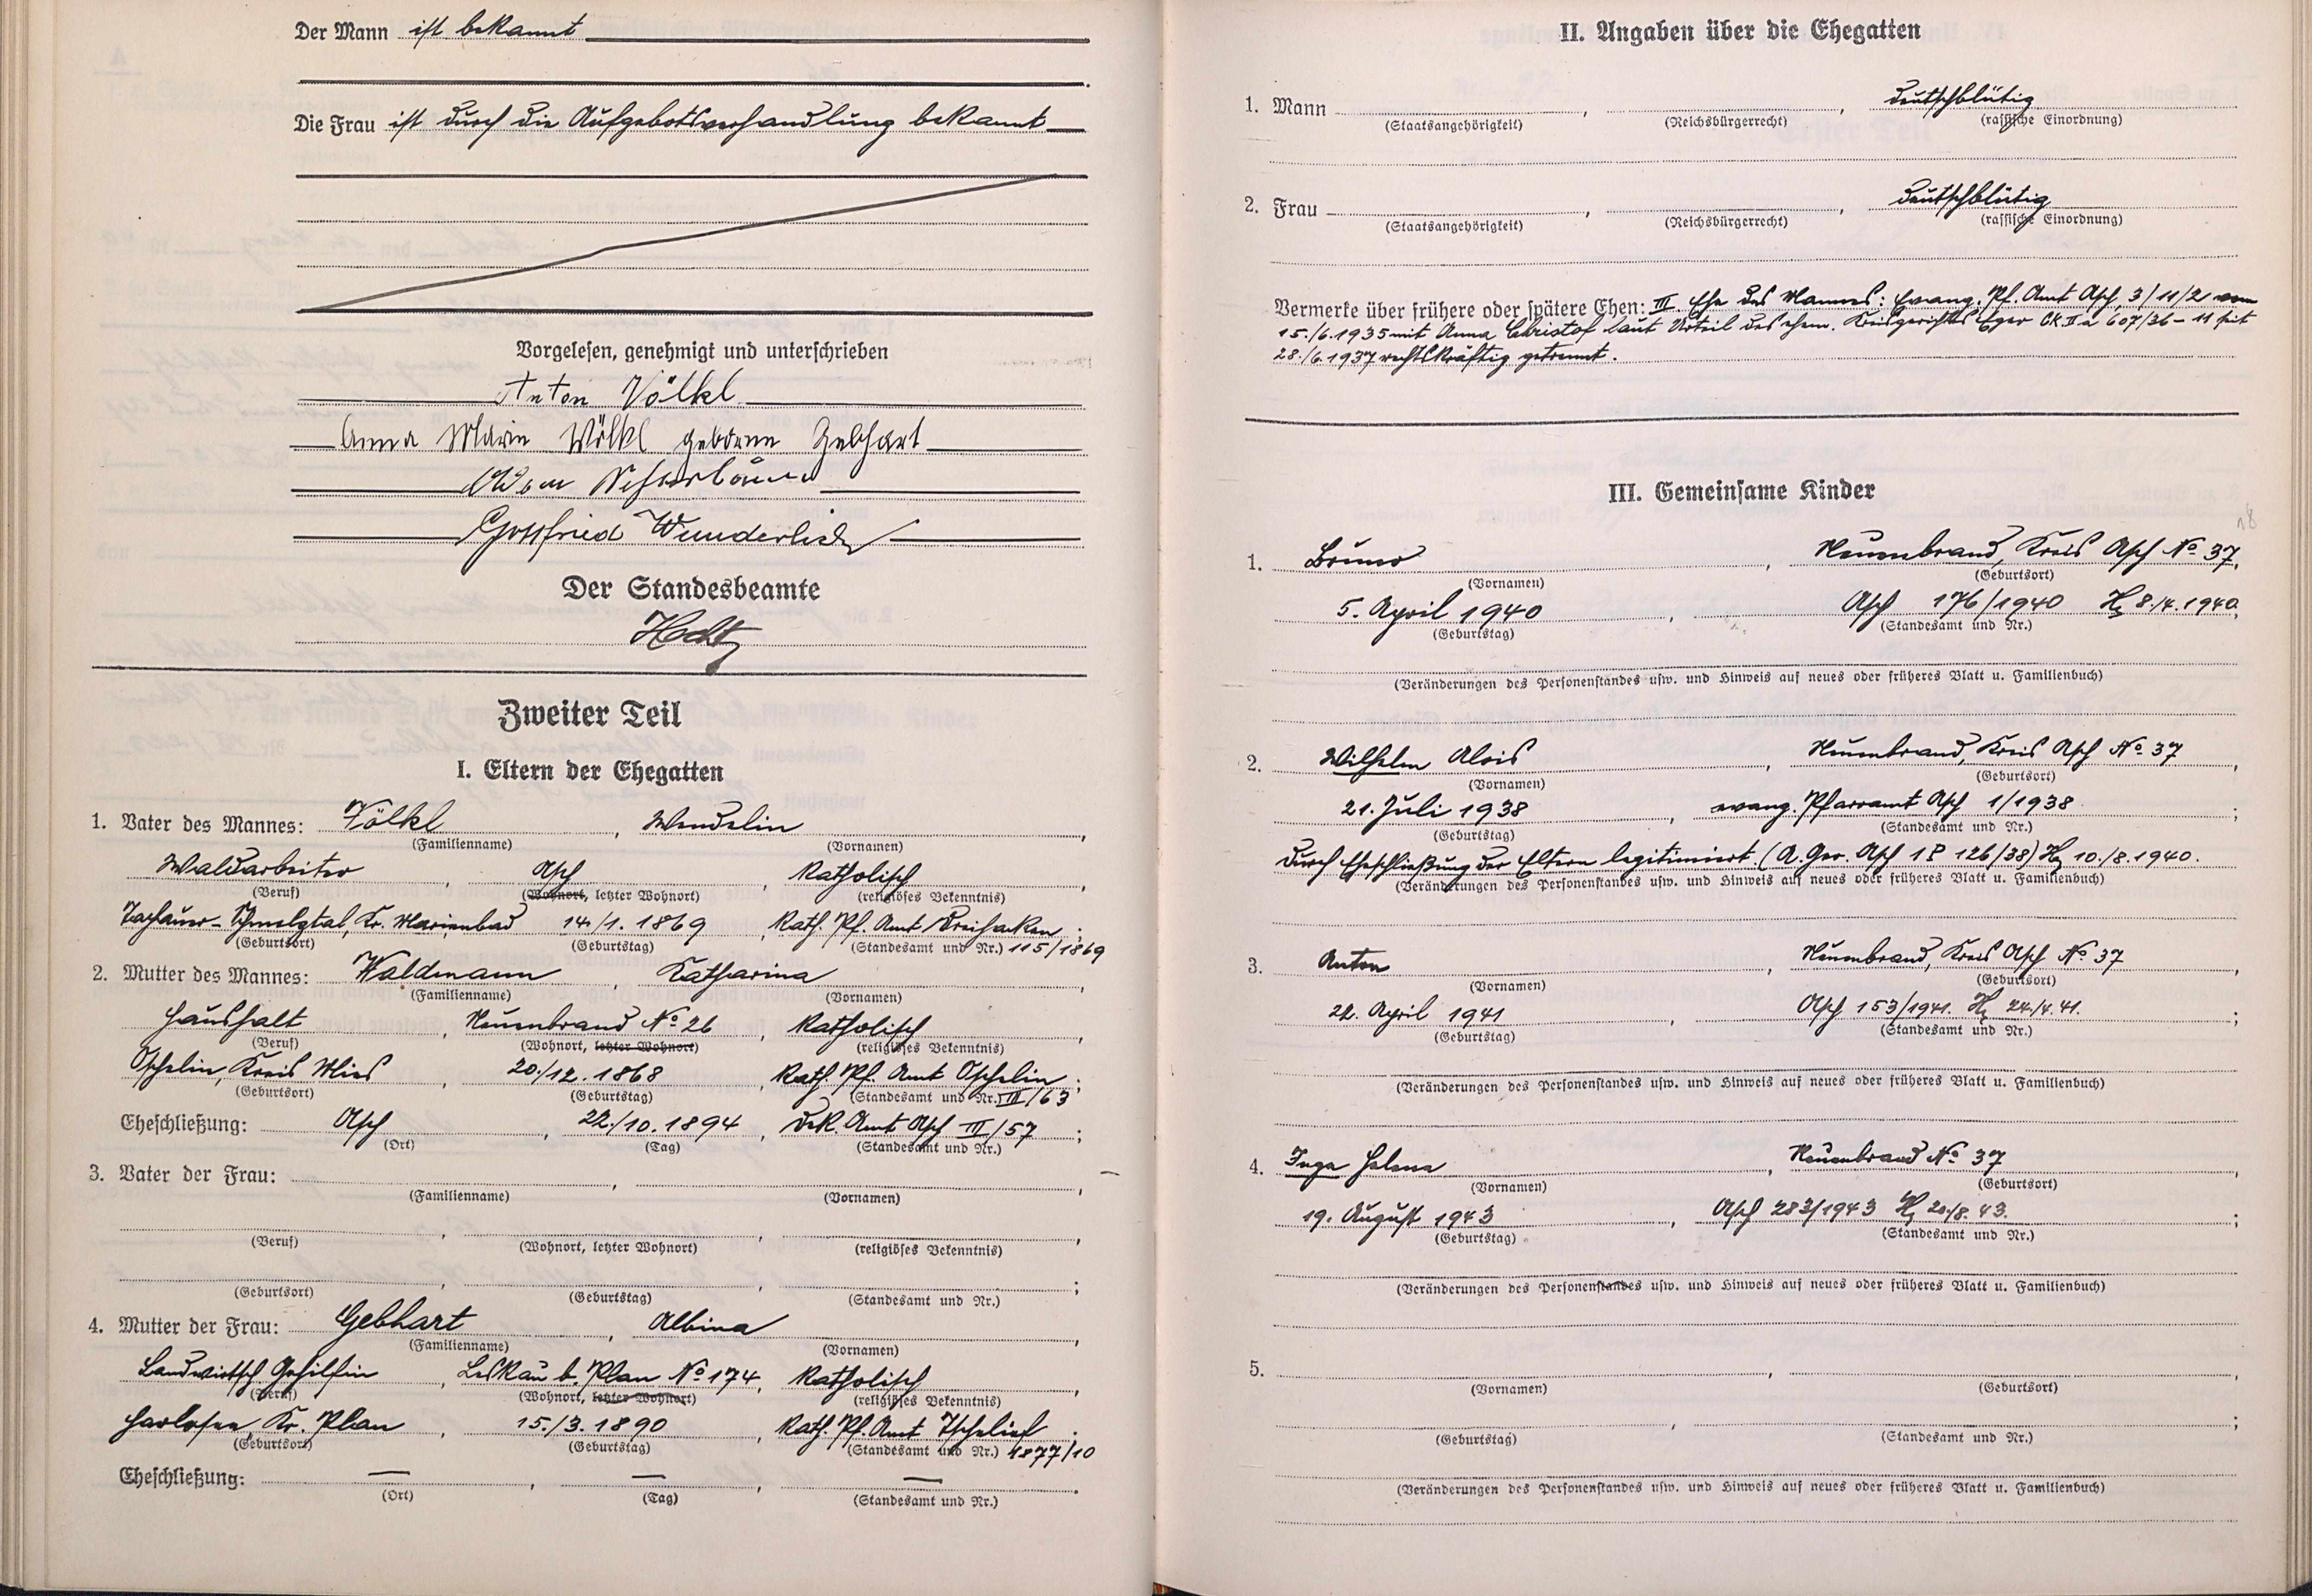 Der Mann ist bekannt
Die Frau ist durch die Aufgebotsverhandlung bekannt
Vorgelesen, genehmigt und unterschrieben
Anton Völkl
Anna Marie Völkl geborene Gebhart
Gottfried Wunderlich
Der Standesbeamte
Zweiter Teil
I. Eltern der Ehegatten
1. Vater des Mannes: Völkl, Wendelin,
(Familienname) (Vornamen)
Waldarbeiter, Asch, katholisch,
(Beruf) (Wohnort, letzter Wohnort) (religiöses Bekenntnis)
Schmelztal, Kr. Marienbad 14./1. 1869, kath. Pf. Amt Dreihacken;
(Geburtsort) (Geburtstag) (Standesamt und Nr.) 115/1869
2. Mutter des Mannes: Waldmann, Katharina,
(Familienname) (Vornamen)
Haushalt, Neuenbrand No 26, katholisch,
(Beruf) (Wohnort, letzter Wohnort) (religiöses Bekenntnis)
Oschelin, Kreis Mies, 20./12. 1868, kath. Pf. Amt Oschelin;
(Geburtsort) (Geburtstag) (Standesamt und Nr.) III/63
Eheschließung: Asch, 22./10. 1894, Dek. Amt Asch III/57;
(Ort) (Tag) (Standesamt und Nr.)
3. Vater der Frau:
(Familienname) (Vornamen)
(Beruf) (Wohnort, letzter Wohnort) (religiöses Bekenntnis)
(Geburtsort) (Geburtstag) (Standesamt und Nr.)
4. Mutter der Frau: Gebhart, Albina,
(Familienname) (Vornamen)
Landwirtsch Gehilfin, Leskau b. Plan No 174, katholisch,
(Beruf) (Wohnort, letzter Wohnort) (religiöses Bekenntnis)
Kr. Plan, 15./3. 1890, kath. Pf. Amt
(Geburtsort) (Geburtstag) (Standesamt und Nr.)
Eheschließung: —, —, —.
(Ort) (Tag) (Standesamt und Nr.)
II. Angaben über die Ehegatten
1. Mann, , deutschblütig
(Staatsangehörigkeit) (Reichsbürgerrecht) (rassische Einordnung)
2. Frau, , deutschblütig
(Staatsangehörigkeit) (Reichsbürgerrecht) (rassische Einordnung)
Vermerke über frühere oder spätere Ehen: III Ehe des Mannes: Evang. Pf. Amt Asch, 3/11/2 vom
15./6. 1935 mit Anna Christof laut Urteil des ehem. Kreisgerichtes Eger CK. II a 607/36 – 11 seit
28./6. 1937 rechtskräftig getrennt.
III. Gemeinsame Kinder
1. Bruno, Neuenbrand, Kreis Asch No 37,
(Vornamen) (Geburtsort)
5. April 1940, Asch 176/1940 8./4. 1940,
(Geburtstag) (Standesamt und Nr.)
(Veränderungen des Personenstandes usw. und Hinweis auf neues oder früheres Blatt u. Familienbuch)
2. Wilhelm Alois, Neuenbrand, Kreis Asch No 37,
(Vornamen) (Geburtsort)
21. Juli 1938, evang. Pfarramt Asch 1/1938;
(Geburtstag) (Standesamt und Nr.)
durch Eheschließung der Eltern legitimiert. (A. Ger. Asch 1P 126/38) 10./8. 1940.
(Veränderungen des Personenstandes usw. und Hinweis auf neues oder früheres Blatt u. Familienbuch)
3. Anton, Neuenbrand, Kreis Asch No 37,
(Vornamen) (Geburtsort)
22. April 1941, Asch 153/1941. 24./4. 41.;
(Geburtstag) (Standesamt und Nr.)
(Veränderungen des Personenstandes usw. und Hinweis auf neues oder früheres Blatt u. Familienbuch)
4. Inga Helena, Neuenbrand No 37,
(Vornamen) (Geburtsort)
19. August 1943, Asch 283/1943 20./8. 43.;
(Geburtstag) (Standesamt und Nr.)
(Veränderungen des Personenstandes usw. und Hinweis auf neues oder früheres Blatt u. Familienbuch)
5.
(Vornamen) (Geburtsort)
(Geburtstag) (Standesamt und Nr.)
(Veränderungen des Personenstandes usw. und Hinweis auf neues oder früheres Blatt u. Familienbuch)